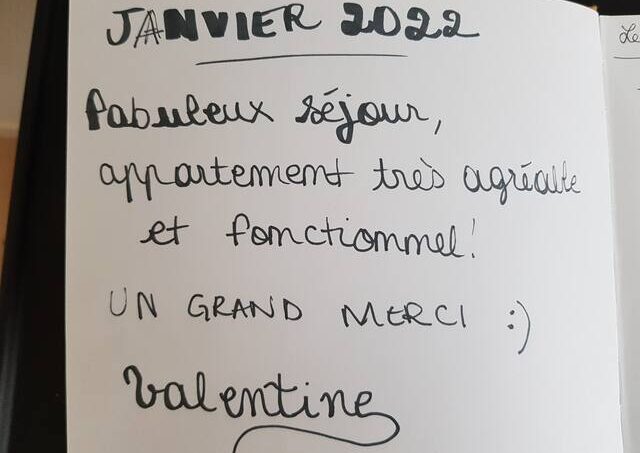 JANVIER 2022
Fabuleux séjour,
appartement très agréable
et fonctionnel!
UN GRAND MERCI :)
Valentine
Le